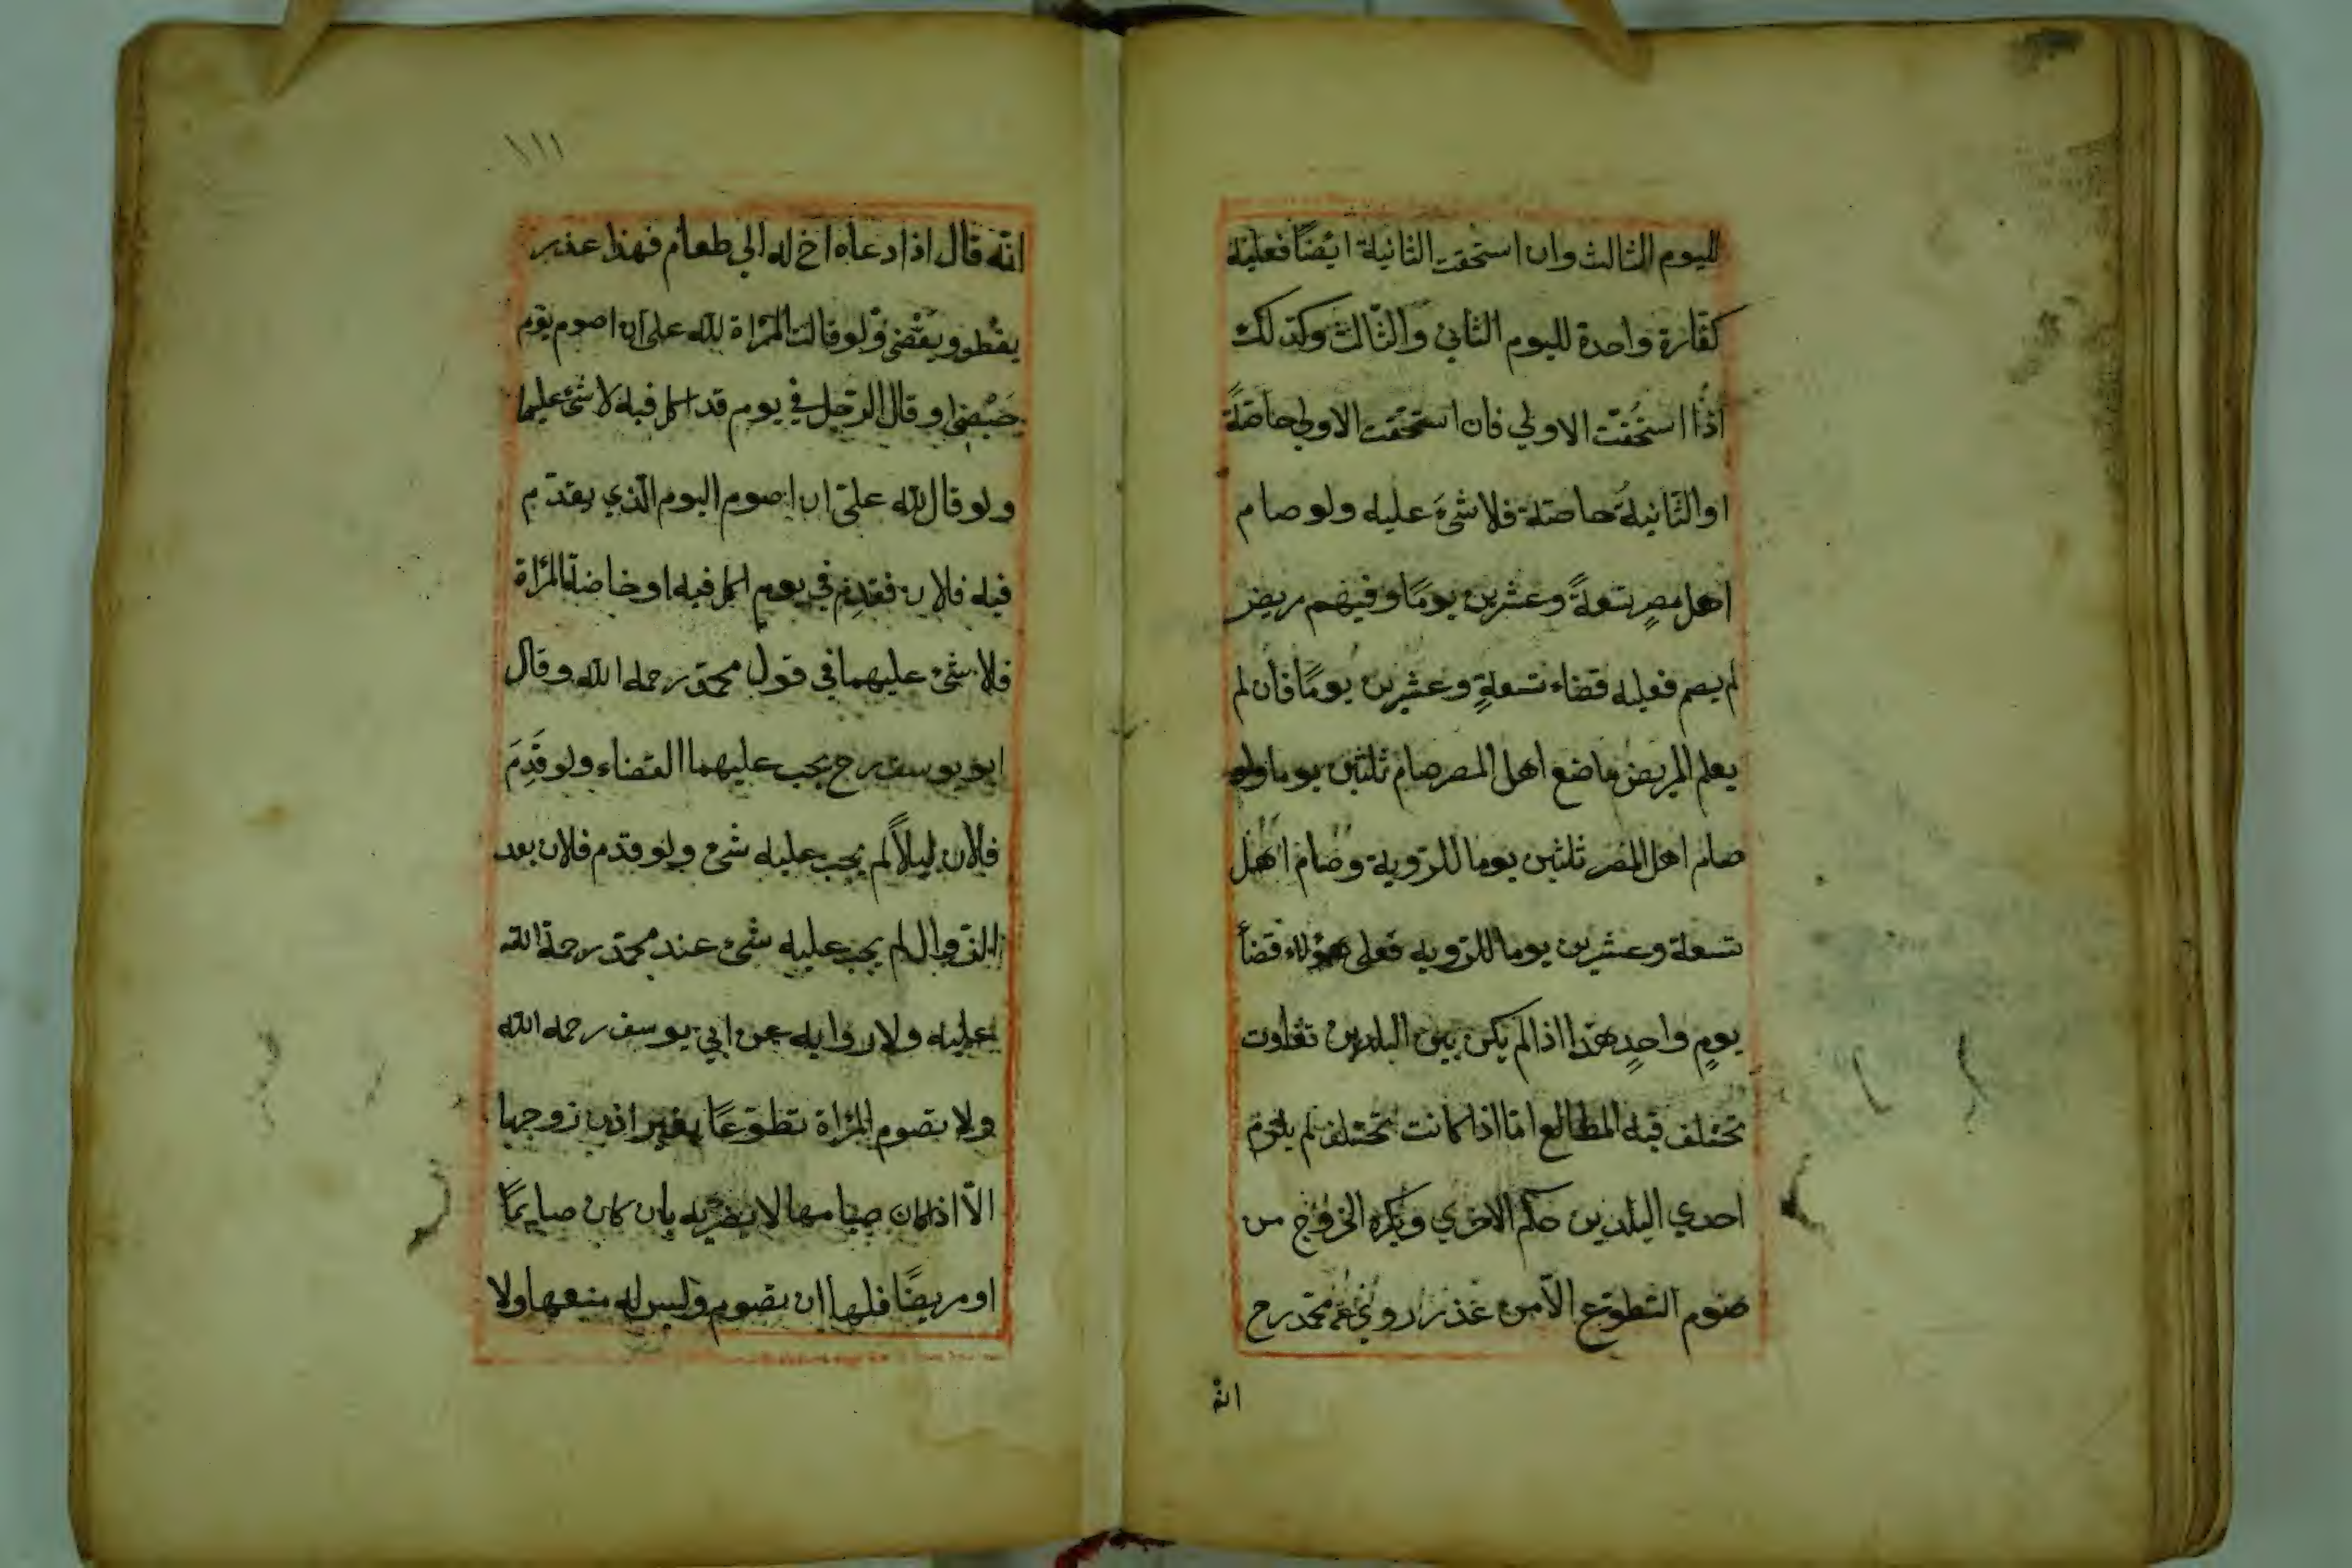 لليوم الثالث وان استحقت الثانية ايضًا فعليه
كفارة واحدة لليوم الثاني والثالث وكذلك
اذا استحقت الاولي فان استحقت الاولي خاصّةً
او الثانية خاصّة فلا شئ عليه ولو صام
اهل مصرٍ تسعةً وعشرين يومًا وفيهم مريض
لم يصم فعليه قضاء تسعةٍ وعشرين يومًا فان لم
يعلم المريض ما صنع اهل المصر صام ثلثين يوما ولو
صام اهل المصر ثلثين يوما للرؤية وصام اهل
تسعة وعشرين يوما للرؤيه فعلى هؤلاء قضأ
يومٍ واحدٍ هذا اذا لم يكن بين البلدين تفاوت
تختلف فيه المطالع امّا اذا كانت تختلف لم يلزم
احدي البلدين حكم الاخري ويكره الخروج من
صوم التطوّع الّا من عذر روي عن محمّد رح
انّه
١١١
انّه قال اذا دعاه اخ له الي طعام فهذا عذر
يفطر ويقضي ولو قالت المرأة لله على ان اصوم يوم
حيضي او قال الرّجل في يوم قد اكل فيه لا شئ عليهما
ولو قال لله عليّ ان اصوم اليوم الّذي يقدم
فيه فلان فقدِم في يوم اكل فيه او حاضة المرأة
فلا شئ عليهما في قول محمّد رحمه الله وقال
ابو يوسف رح يجب عليهما القضاء ولو قَدِمَ
فلان ليلاً لم يجب عليه شئ ولو قدم فلان بعد
الزّوال لم يجب عليه شئ عند محمّد رحمة الله
عليه ولا رواية عن ابي يوسف رحمه الله
ولا تصوم المرأة تطوّعًا بغير اذن زوجها
الّا اذا كان صيامها لا يضرّ به بان كان صايمًا
او مريضًا فلها ان تصوم وليس له منعها ولا